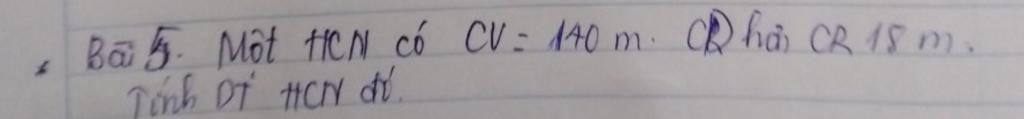 Bài 5. Một HCN có CV = 140 m. CD hơn CR 18 m.
Tính DT HCN đó.